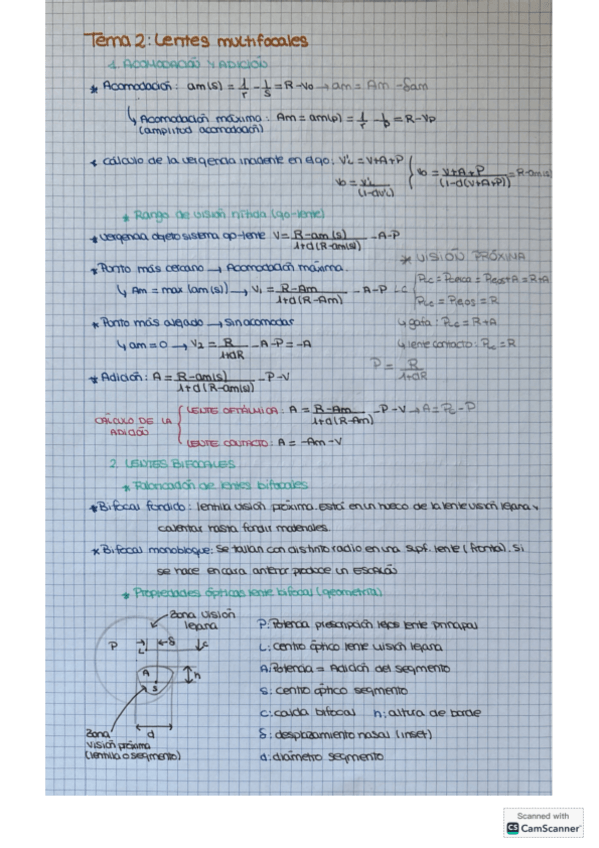 Tema 2: Lentes multifocales
1. ACOMODACIÓN Y ADICIÓN
* Acomodación: am(s) = 1/r - 1/s = R-Vo → am = Am - δam
↳ Acomodación máxima: Am = am(p) = 1/r - 1/p = R-Vp
(amplitud acomodación)
* cálculo de la vergencia incidente en el ojo: Vi' = V+A+P { Vo = V+A+P/(1-d(V+A+P)) = R-am(s)
Vo = Vi'/(1-dVi')
* Rango de visión nítida (ojo-lente)
* Vergencia objeto sistema ojo-lente V = R-am(s)/1+d(R-am(s)) - A-P
* VISIÓN PRÓXIMA
* Punto más cercano → Acomodación máxima.
PLC = Pcerca = Plejos+A = R+A
↳ Am = max (am(s)) → V1 = R-Am/1+d(R-Am) - A-P
PLC = Plejos = R
* Punto más alejado → sin acomodar
↳ gafa: PLC = R+A
↳ am=0 → V2 = R/1+dR - A-P = -A
↳ lente contacto: PLC = R
P = R/1+dR
* Adición: A = R-am(s)/1+d(R-am(s)) - P-V
CÁLCULO DE LA ADICIÓN
LENTE OFTÁLMICA: A = R-Am/1+d(R-Am) - P-V → A = PC-P
LENTE CONTACTO: A = -Am-V
2. LENTES BIFOCALES
* Fabricación de lentes bifocales
* Bifocal fundido: lentilla visión próxima está en un hueco de la lente visión lejana y
calentar hasta fundir materiales.
* Bifocal monobloque: Se tallan con distinto radio en una supf. lente (frontal). Si
se hace en cara anterior produce un ESCALÓN
* Propiedades ópticas lente bifocal (geometría)
Zona visión
lejana
P: Potencia prescripción lejos lente principal
P L δ c
L: centro óptico lente visión lejana
A h
A: Potencia = Adición del segmento
S
S: centro óptico segmento
c: caída bifocal h: altura de borde
Zona
d
visión próxima
(lentilla o segmento)
δ: desplazamiento nasal (inset)
d: diámetro segmento
Scanned with
CS CamScanner